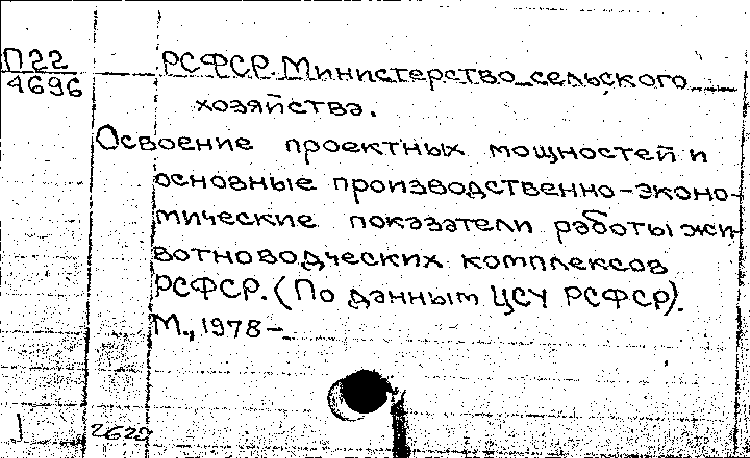 П22
4696
РСФСР. Министерство сельского
хозяйства.
Освоение проектных мощностей и
основные производственно-эконо-
мические показатели работы жи-
вотноводческих комплексов
РСФСР. (По данным ЦСУ РСФСР).
М., 1978 -